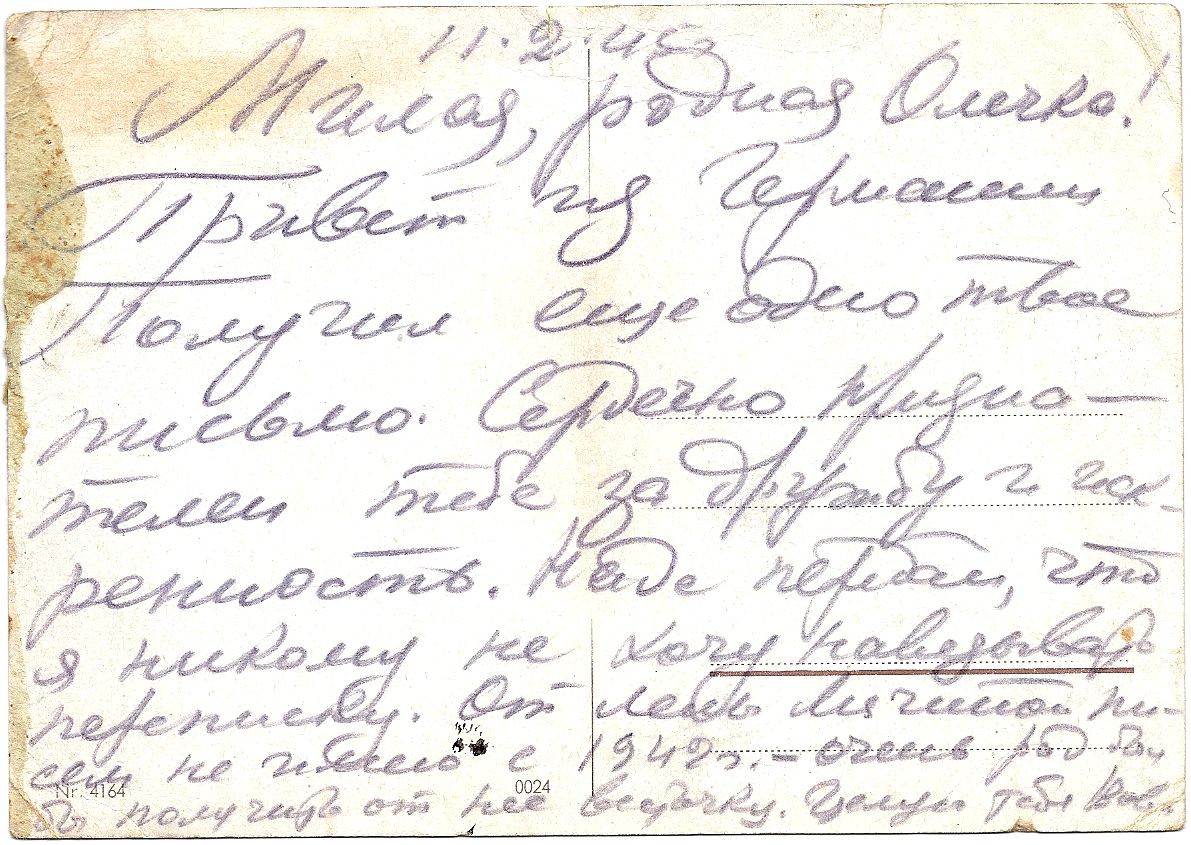 11.2.45
Милая, родная Олечка!
Привет из Германии
Получил еще одно твое
письмо. Сердечно призна-
телен тебе за дружбу и иск-
ренность. Наде передай, что
я никому не хочу навязывать
переписку. От писем
сем не имею с 1942 г. – очень рад был
бы получить от нее весточку. Целую тебя
Nr. 4164 0024